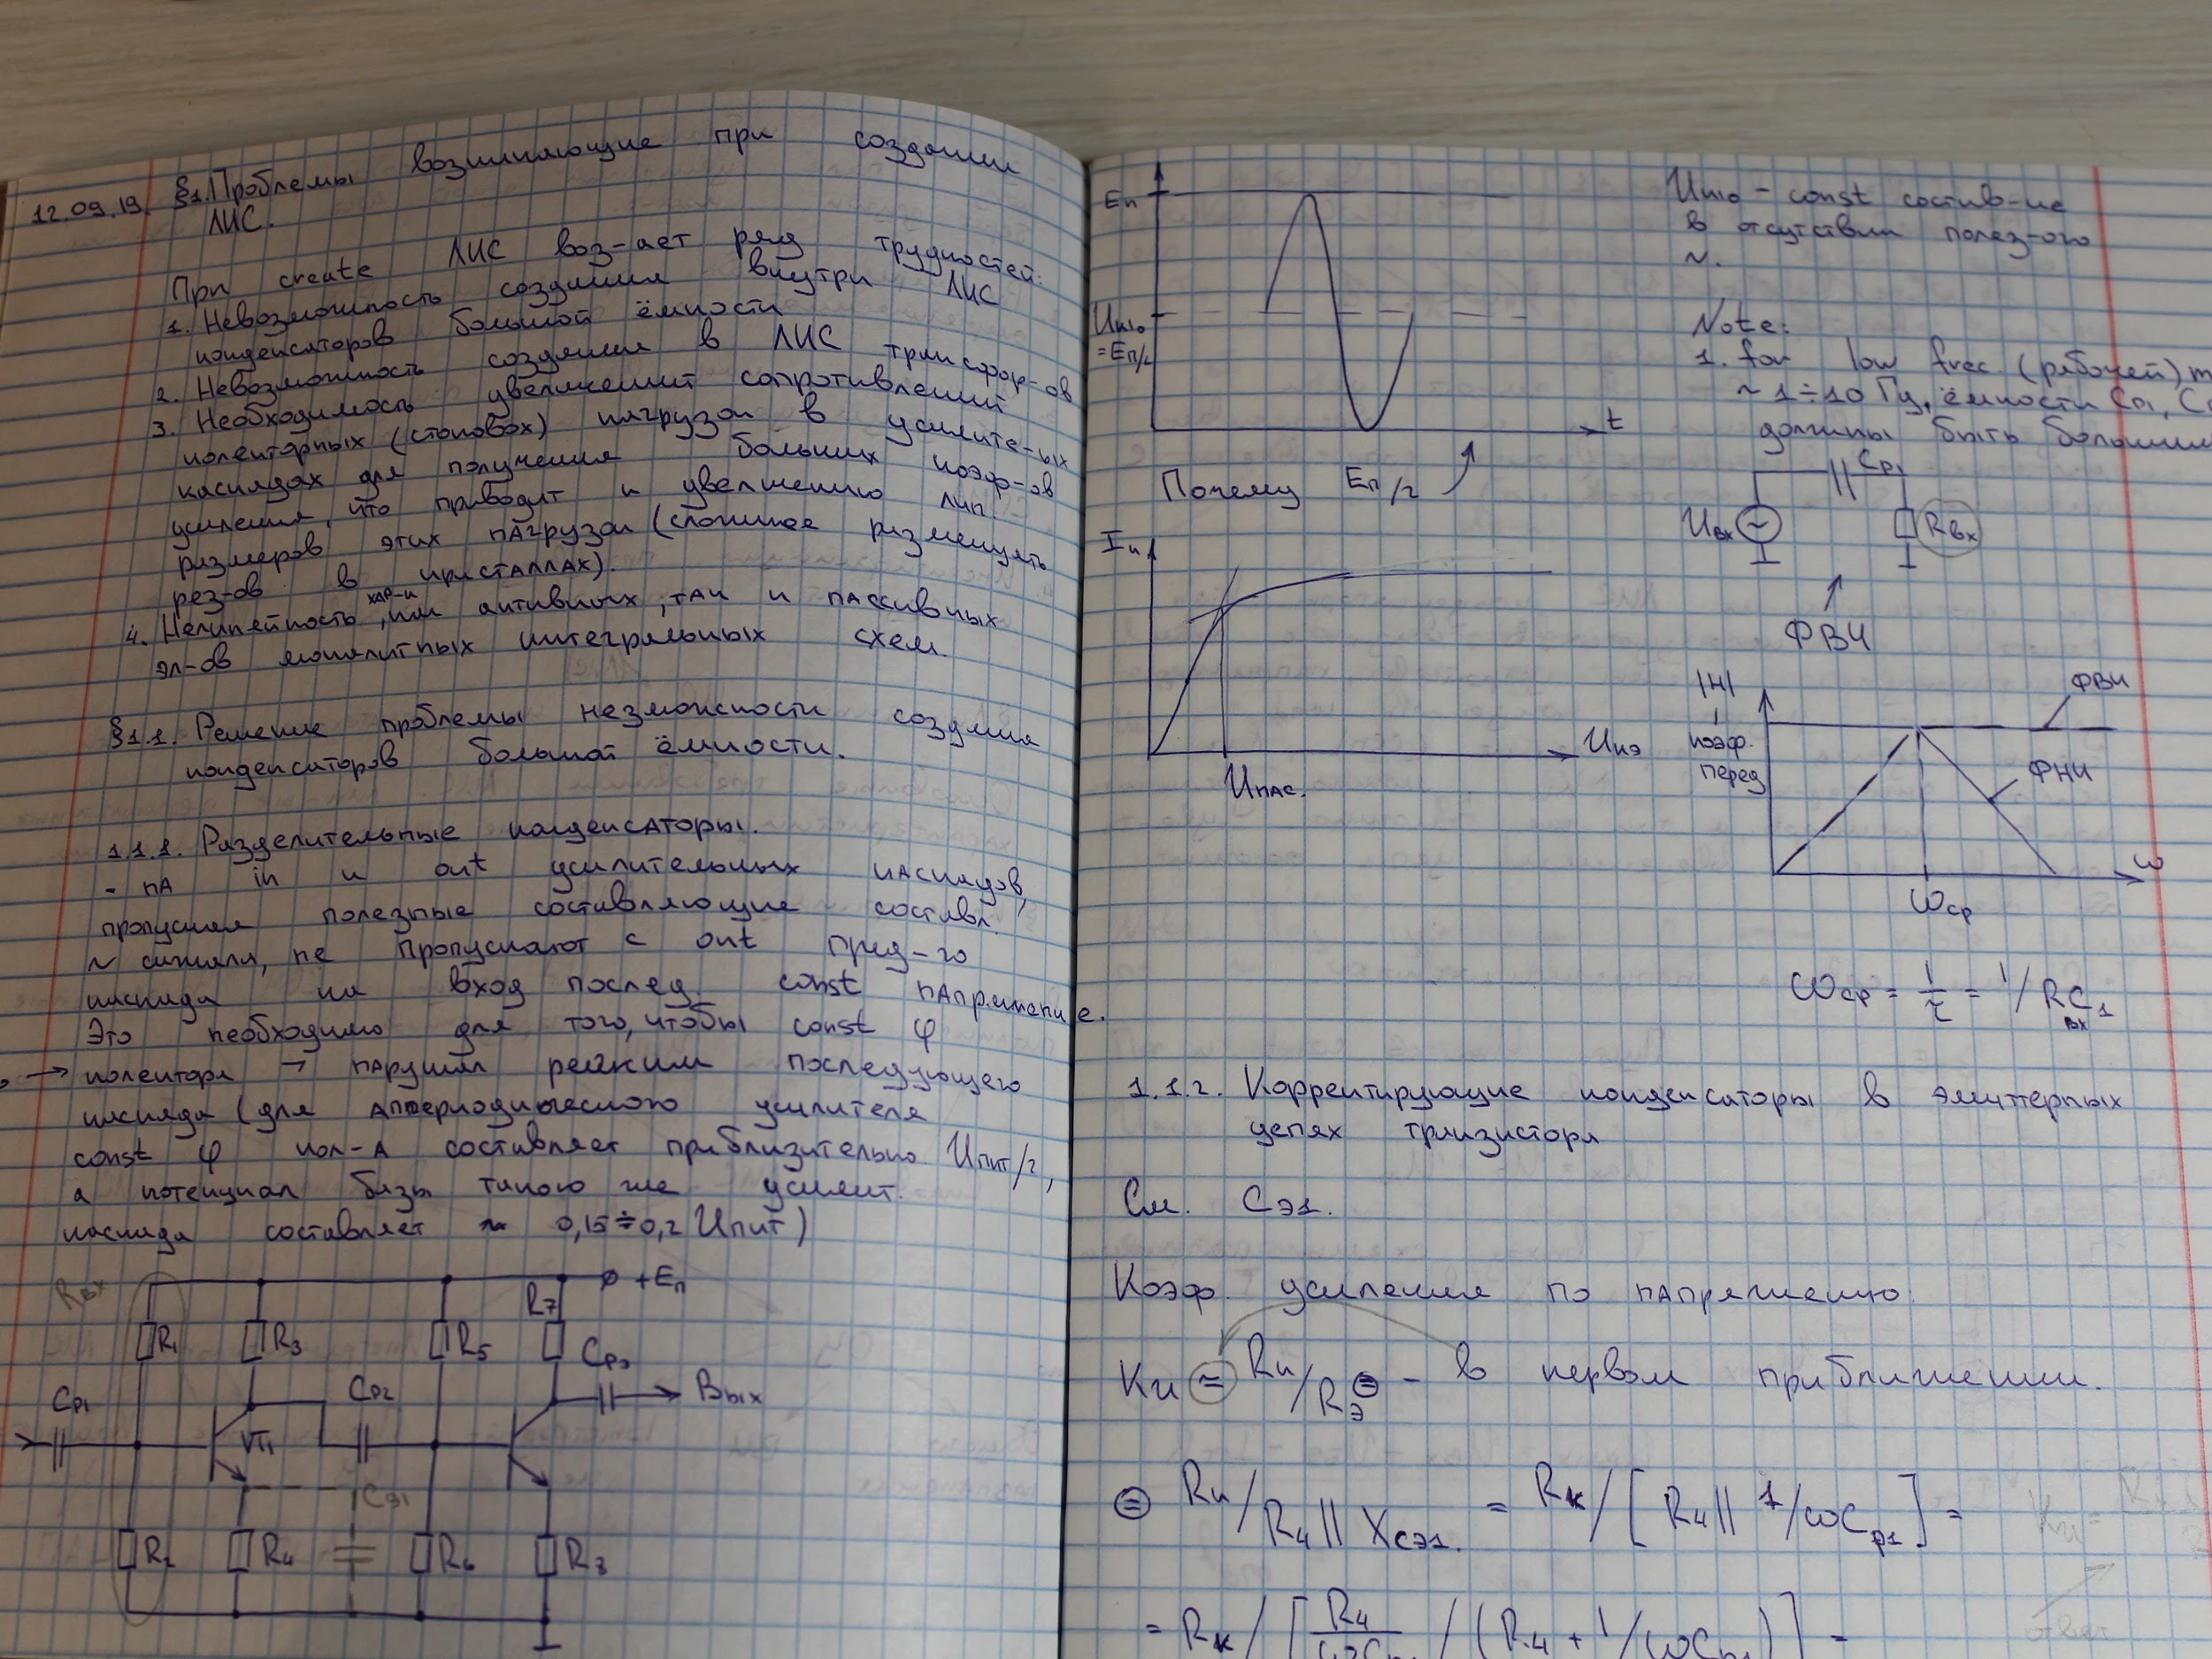 12.09.19. §1. Проблемы возникающие при создании
ЛИС.
При create ЛИС воз-ает ряд трудностей:
1. Невозможность создания внутри ЛИС
конденсаторов большой ёмкости
2. Невозможность создания в ЛИС трансфор-ов
3. Необходимость увеличения сопротивлений
коллекторных (стоковых) нагрузок в усилите-ых
каскадах для получения больших коэф-ов
усиления, что приводит к увеличению лин.
размеров этих нагрузок (сложнее размещать
рез-ов в кристаллах).
4. Нелинейность хар-к, как активных, так и пассивных
эл-ов монолитных интегральных схем.
§1.1. Решение проблемы незможности создания
конденсаторов большой ёмкости.
1.1.1. Разделительные конденсаторы.
- на in и out усилительных каскадов,
пропуская полезные составляющие составл.
~ сигнала, не пропускают с out пред-го
каскада на вход послед. const напряжение.
Это необходимо для того, чтобы const φ
→ коллектора → нарушал режим последующего
каскада (для апериодического усилителя
const φ кол-а составляет приблизительно Uпит/2,
а потенциал базы такого же усилит.
каскада составляет ~ 0,15÷0,2 Uпит)
Rвх
+Eп
R1
R3
R5
R7
Cр3
Cр1
Cр2
Вых
VT1
Cэ1
R2
R4
R6
R8
Eп
Uкю
=Eп/2
t
Почему Eп/2
Iк
Uкэ
Uнас.
Uкю - const составл-ие
в отсутствии полез-ого
~.
Note:
1. for low frec. (рабочей)
~ 1÷10 Гц, ёмкости Cр1,
должны быть большими
Cр1
Uвх
Rвх
ФВЧ
|H|
коэф.
перед
ФВЧ
ФНЧ
ω
ωср
ωср = 1/τ = 1/RвхC1
1.1.2. Корректирующие конденсаторы в эмиттерных
цепях транзистора
См. Cэ1.
Коэф. усиления по напряжению.
Kи ≈ Rк/Rэ ⊜ - в первом приближении.
⊜ Rк/R4 || Xcэ1. = Rк/[R4 || 1/ωCр1] =
= Rк/[R4/ωCр1 / (R4 + 1/ωCр1)] =
Kи =
ответ